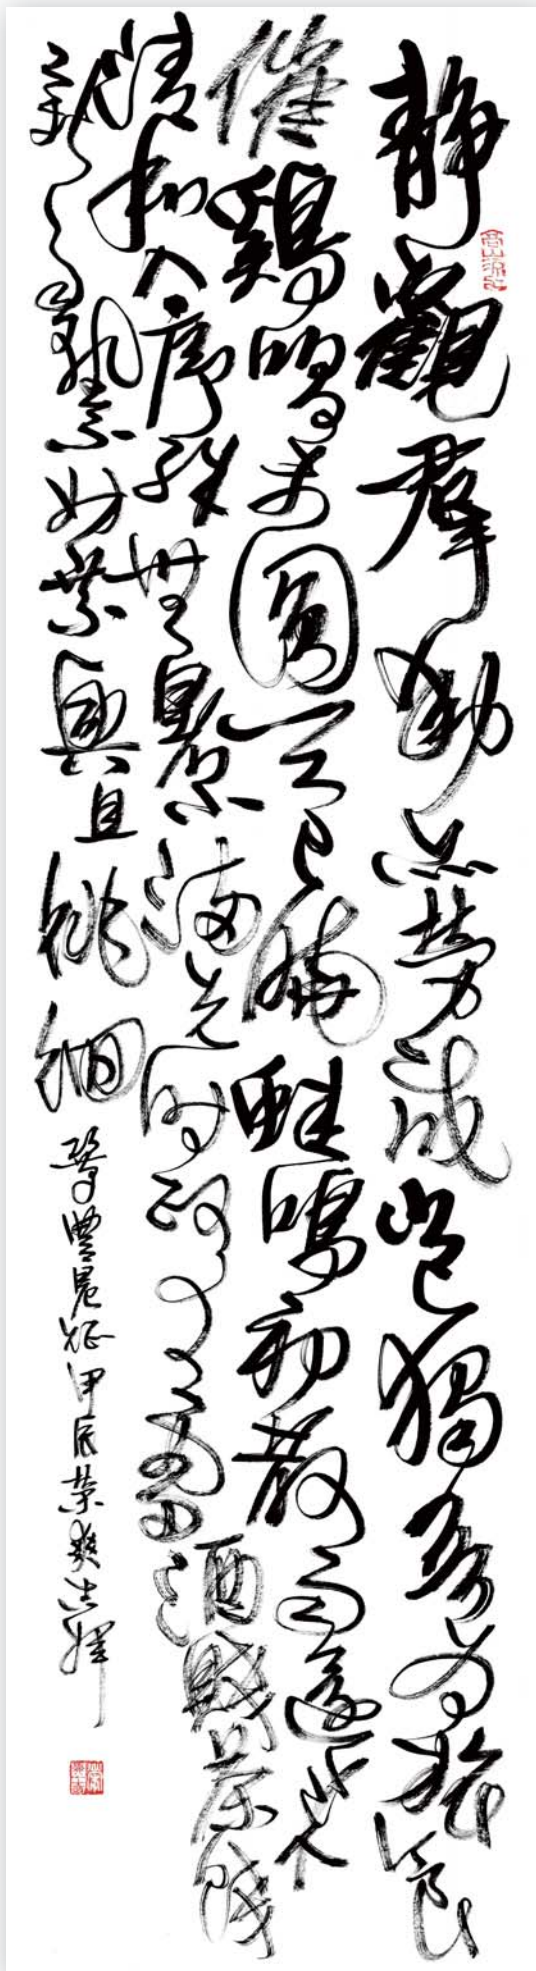 靜觀群動亦勞哉豈獨吾為旅食
催雞唱未圓天已曉蛙鳴初散雨還來
清和入序殊無暑小滿先時政有雷酒賤茶饒
新而熟不妨乘興且徘徊 鞏豐晨征甲辰